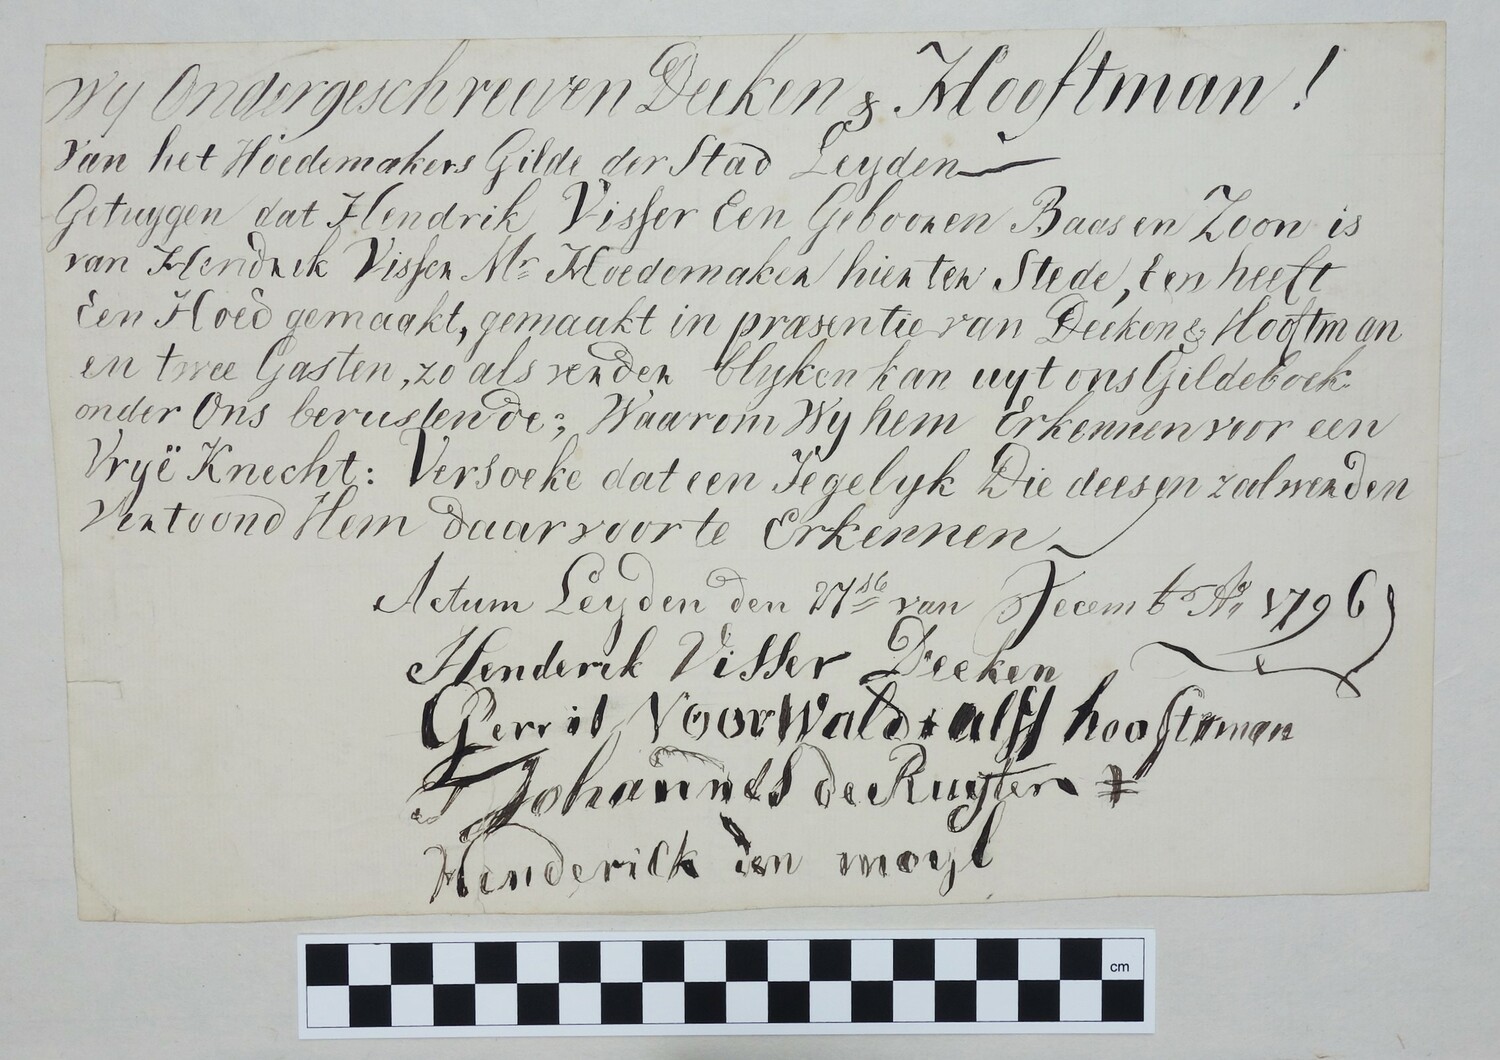 Wy Ondergeschreeven Deeken & Hooftman!
Van het Hoedemakers Gilde der Stad Leyden
Getuygen dat Hendrik Visser Een Gebooren Baas en Zoon is
van Hendrik Visser Mr Hoedemaker hier ter Stede, En heeft
Een Hoed gemaakt, gemaakt in præsentie van Deeken & Hooftman
en twee Gasten, zo als verder blyken kan uyt ons Gildeboek
onder Ons berustende; Waarom Wy hem Erkennen voor een
Vryë Knecht: Versoeke dat een Iegelyk Die deesen zal werden
Vertoond Hem daar voor te Erkennen
Actum Leyden den 27ste van Decemb Ao 1796
Henderik Visser Deeken
Gerrit Voorwald alss hooftman
Johannes de Ruyter
Henderick den moyl